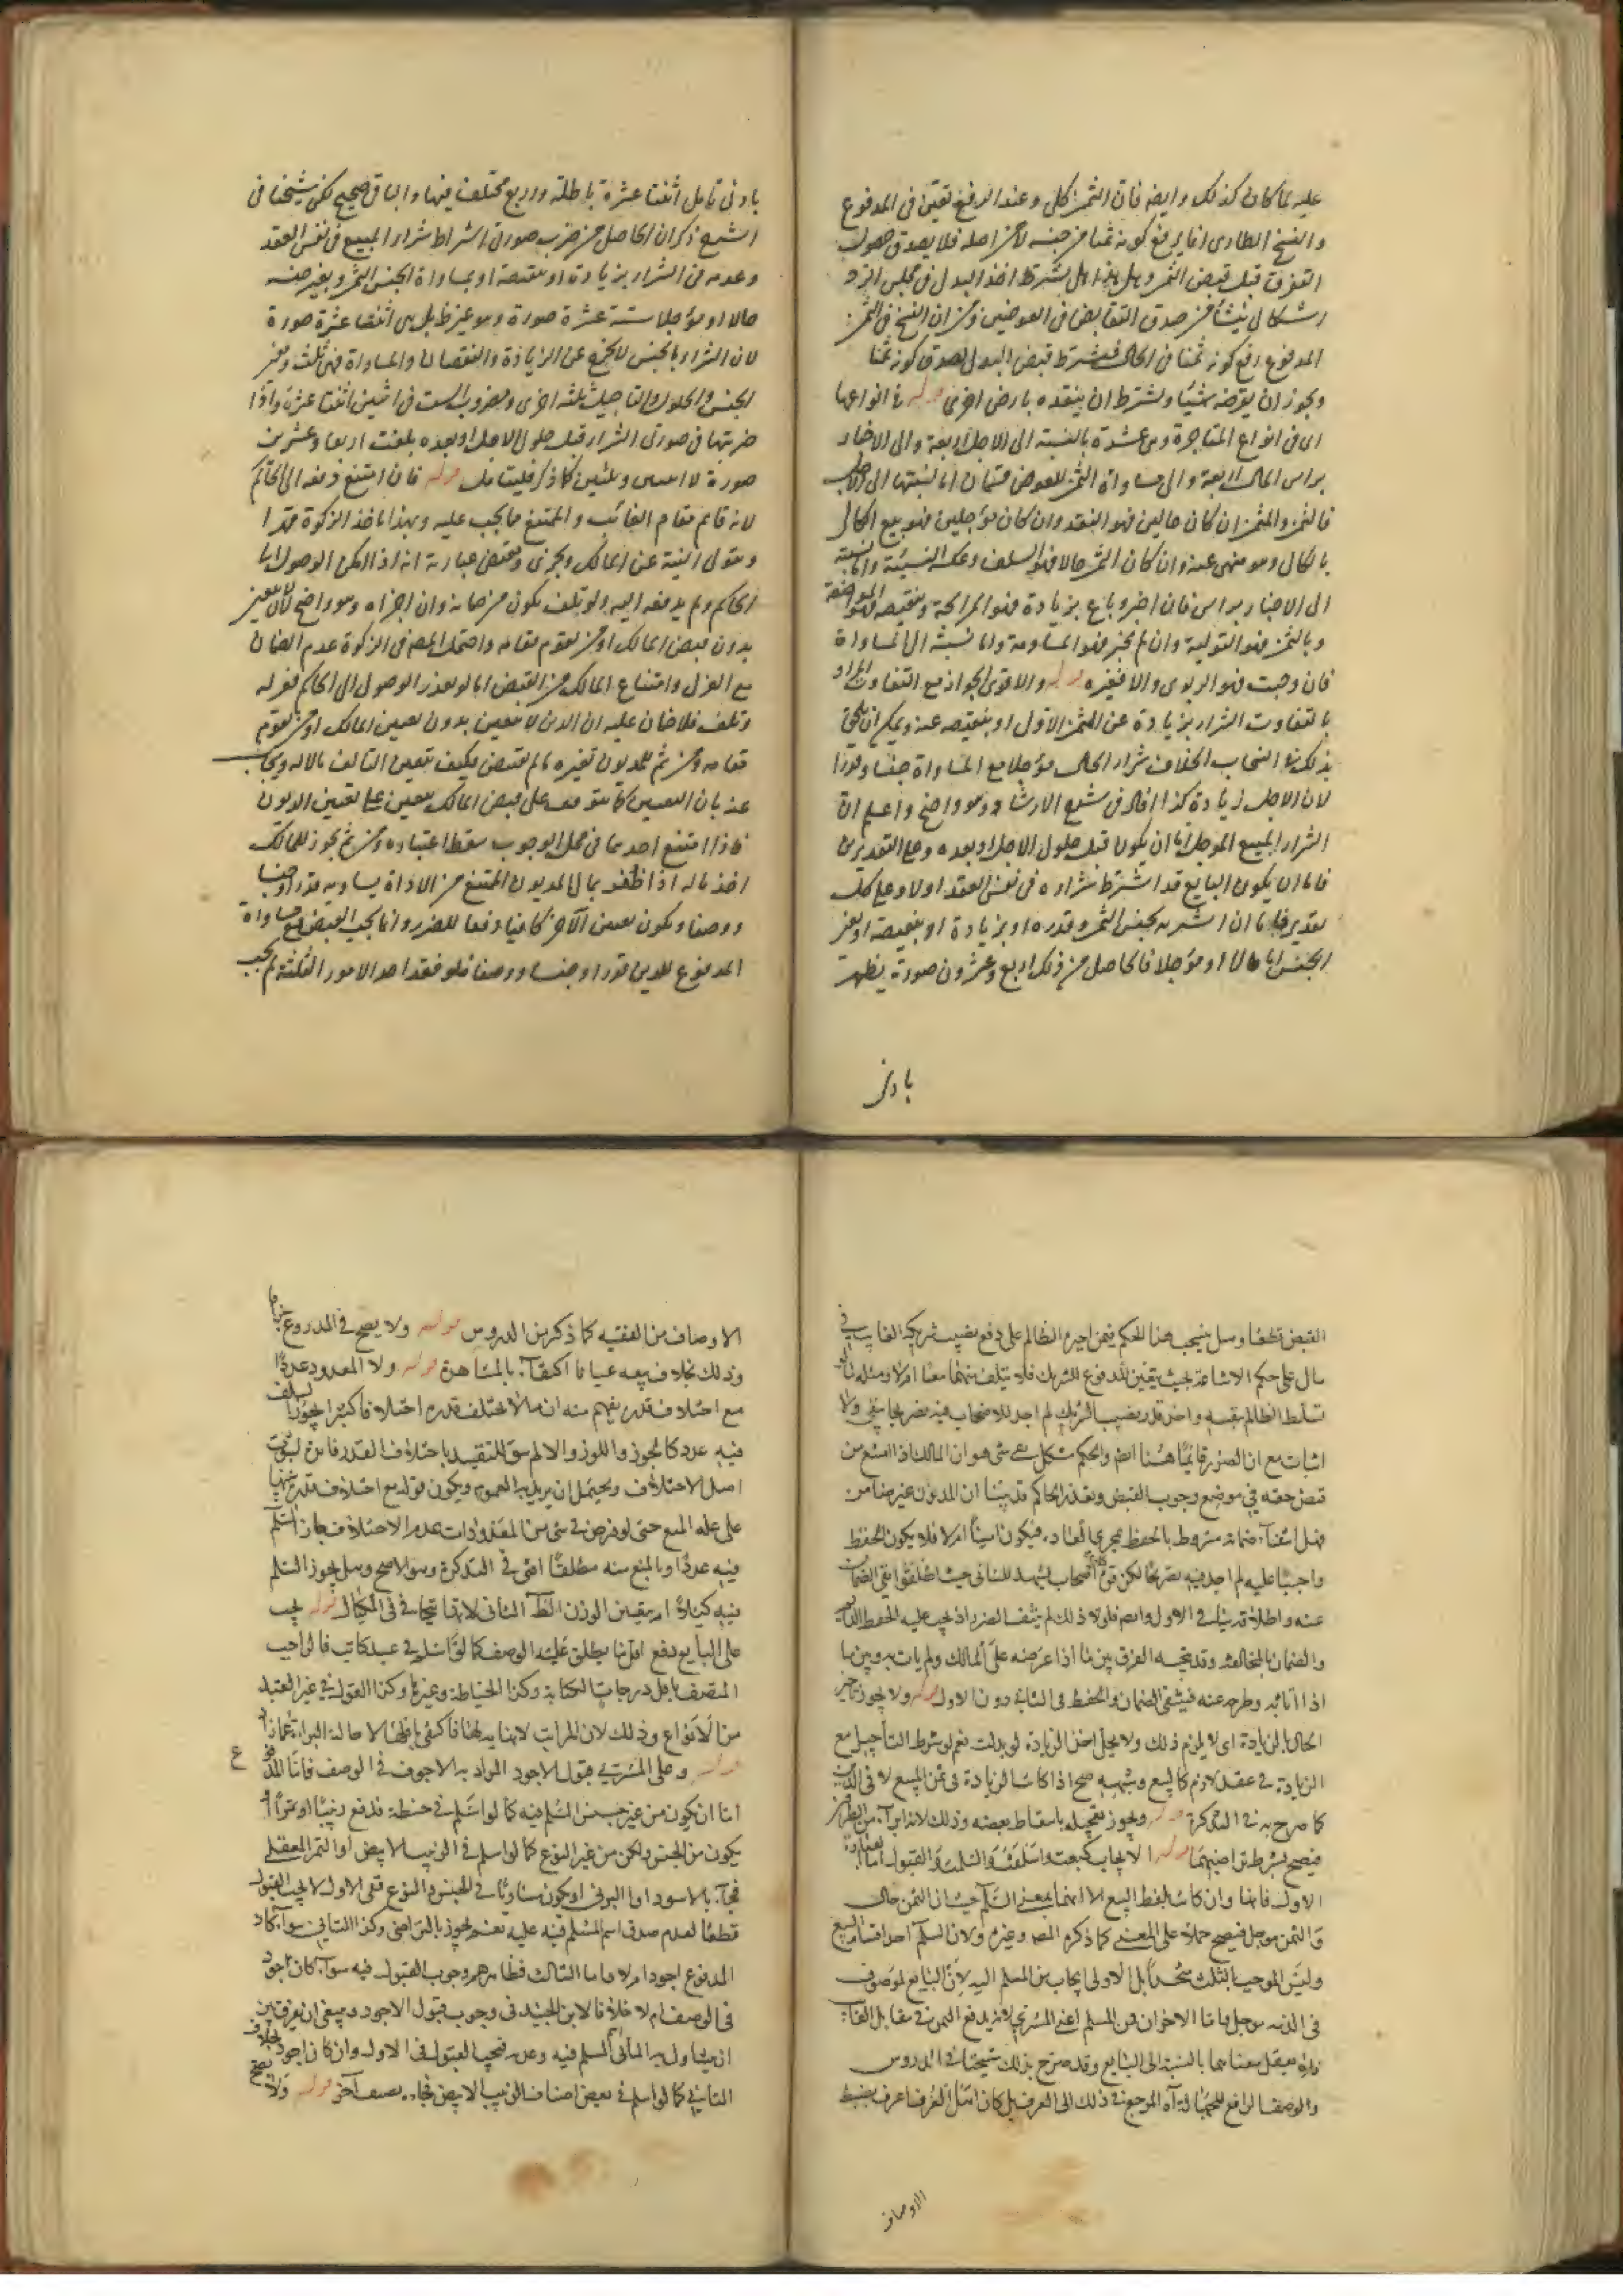 عليه لما كان كذلك وايضا فان الثمن كلي وعند الدفع تعين في المدفوع
والفسخ الطارى انما يرفع كونه ثمنا من حينه لا من اصله فلا يصدق حصول
التفرق قبل قبض الثمن وهل يشترط اخذ البدل في مجلس الرد
اشكال ينشأ من صدق التقابض في العوضين ومن ان الفسخ في الثمن
المدفوع رفع كونه ثمنا في الحال فيشترط قبض البدل لصدق كونه ثمنا
ويجوز ان يقرضه شيئا ويشترط ان ينقده بارض اخرى قوله في انواعها
اى في انواع المتاجرة وهى عشرة بالنسبة الى الاجل اربعة والى الاخبار
براس المال اربعة والى مساواة الثمن للعوض قسمان اما نسبتها الى الاجل
فالثمن والمثمن ان كان حالين فهو النقد وان كان مؤجلين فهو بيع الكالى
بالكالى وهو منهى عنه وان كان الثمن حالا فهو السلف وعكسه النسيئة واما نسبته
الى الاخبار براس فان اخبر وباع بزيادة فهو المرابحة وبنقيصه فهو المواضعة
وبالثمن فهو التولية وان لم يخبر فهو المساومة واما نسبته الى المساواة
فان وجبت فهو الربوى والا فغيره قوله والاقوى الجواز مع التفاوت المراد
بالتفاوت الشراء بزيادة عن الثمن الاول او بنقيصه عنه ويمكن ان يلحق
بذلك انسحاب الخلاف شراء الحال مؤجلا مع المساواة جنسا وقدرا
لان الاجل زيادة كذا افاد في شرح الارشاد وهو واضح واعلم ان
الشراء المبيع المؤجل اما ان يكون قبل حلول الاجل او بعده وعلى التقديرين
فاما ان يكون البايع قد اشترط شراءه في نفس العقد اولا وعلى كل
تقدير فاما ان اشتريه بجنس الثمن وقدره او بزيادة او بنقيصه او بغير
الجنس اما حالا او مؤجلا فالحاصل من ذلك اربع وعشرون صورة يظهر
بادنى
بادنى تامل اثنتا عشرة باطلة واربع مختلف فيها والباقي صحيح لكن شيخنا في
الشرح ذكر ان الحاصل من ضرب صورتى اشتراط شراء المبيع في نفس العقد
وعدمه في الشراء بزيادة او نقيصة او بمساواة الجنس الثمن وبغير جنسه
حالا او مؤجلا ستة عشرة صورة وهو غير ظ بل هى اثنتا عشرة صورة
لان الشراء بالجنس لا يخرج عن الزيادة والنقصان والمساواة فهى ثلث وبغير
الجنس والحلول والتاجيل ثلثة اخرى ومضروب الست في اثنين اثنتا عشرة واذا
ضربتها في صورتى الشراء قبل حلول الاجل او بعده بلغت اربعا وعشرين
صورة لا اثنين وثلثين كما ذكر فليتامل قوله فان امتنع دفعه الى الحاكم
لانه قايم مقام الغائب والممتنع مما يجب عليه ولهذا ياخذ الزكوة قهرا
ويتولى النية عن المالك ويجزى ومقتضى عبارته انه اذا امكن الوصول الى
الحاكم ولم يدفعه اليه ولو تلف يكون من ضمانه وان اجزاه وهو واضح لان تعين
بدون قبض المالك او من يقوم مقامه واحتمل المصنف في الزكوة عدم الضمان
مع العزل وامتناع المالك من القبض اما لو تعذر الوصول الى الحاكم فعزله
وتلف فلا ضمان عليه ان الدين لا يتعين بدون تعيين المالك او من يقوم
مقامه ومن ثم للمديون تغييره ما لم يقبض فكيف يتعين التالف مالا له ويجاب
عنه بان التعيين كما يتوقف على قبض المالك يتعين على تعيين المديون
فاذا امتنع احدهما في محل الوجوب سقط اعتباره ومن ثم يجوز للمالك
اخذ ماله اذا ظفر بمال المديون الممتنع من الاداة يساويه قدرا وجنسا
ووصفا ويكون تعيين الآخر كافيا دفعا للضرر وانما يجب القبض مع مساواة
المدفوع للدين قدرا وجنسا ووصفا فلو فقد احد الامور الثلثة لم يجب
القبض قطعا وهل ينسحب هذا الحكم فيمن اجبره الظالم على دفع نصيب شريكه الغايب في
مال على حكم الاشاعة بحيث يتعين المدفوع للشريك فلا يتلف منهما معا ام لا
تسلط الظالم بنفسه واخذ قدر نصيب الشريك لم اجد للاصحاب فيه تصريحا بنفي ولا
اثبات مع ان الضرر قائم هنا ايضا والحكم مشكل بقى شئ هو ان المالك اذا امتنع من
قبض حقه في موضع وجوب القبض وتعذر الحاكم قد بينا ان المديون غير ضامن
فهل انتفاء ضمانه مشروط بالحفظ بمجرى العادة فيكون امينا ام لا فلا يكون الحفظ
واجبا عليه لم اجد فيه تصريحا لكن قوة الاصحاب يشهد للثاني حيث اطلقوا نفي الضمان
عنه واطلاقه قد ينافي الاول وايضا فلولا ذلك لم ينتف الضرر اذ يجب عليه الحفظ الدائم
والضمان بالمخالفة وقد يتجه الفرق بين ما اذا عرضه على المالك ولم يات به وبين ما
اذا اتاه به وطرحه عنده فينتفي الضمان والحفظ في الثاني دون الاول قوله ولا يجوز تاخير
الحال بالزيادة اى لا يلزم ذلك ولا يحل اخذ الزيادة لو بذلت نعم لو شرط التأجيل مع
الزيادة في عقد لازم كالبيع وشبهه صح اذا كانت الزيادة في ثمن المبيع لا في الدين
كما صرح به في التذكرة قوله ويجوز تعجيله باسقاط بعضه وذلك لانه ابراء من الطرفين
فيصح بشرط تراضيهما قوله الايجاب كبعت واسلفت والسلف والقبول اما
الاول فانها وان كانت لفظ البيع الا انها بمعنى السلم حيث ان الثمن حال
والمثمن موجل فيصح حملا على المعنى كما ذكره المصنف وغيره ولان السلم احد اقسام البيع
وليس الموجب بالثلث متحدا بل الاولى ايجاب من المسلم اليه لان البايع لموصوف
في الذمة موجل واما الاخوان فمن المسلم اعنى المشترى لانه يدفع الثمن في مقابل
ولا يعقل معناهما بالنسبة الى البايع وقد صرح بذلك شيخنا في الدروس
والوصف الرافع للجهالة آه المرجع في ذلك الى العرف بل كان اهل العرف اعرف بضبط
الاوصاف
الاوصاف من الفقيه كما ذكر من الدروس قوله ولا يصح في المذروع جزافا
وذلك بخلاف بيعه عيانا اكتفاء بالمشاهدة قوله ولا المعدود عددا
مع اختلاف قدره يفهم منه ان ما لا يختلف قدره اختلافا كثيرا يجوز السلف
فيه عددا كالجوز واللوز والا لم يبق للتقييد باختلاف القدر فايدة لثبوت
اصل الاختلاف ويحتمل ان يريد به العموم ويكون قوله مع اختلاف قدره تنبيها
على علة المنع حتى لو فرض في شئ من المعدودات عدم الاختلاف جاز السلم
فيه عددا وبالمنع منه مطلقا افتى في التذكرة وهو الاصح وهل يجوز السلم
فيه كيلا ام يتعين الوزن الظ الثاني لانها تتجافى في المكيال قوله يجب
على البايع دفع اقل ما يطلق عليه الوصف كما لو اسلم في عبد كاتب فالواجب
المتصف باقل درجات الكتابة وكذا الخياطة وغيرها وكذا القول في غير العبد
من الانواع وذلك لان المراتب لا نهاية لها فاكتفى باقلها لاصالة البراءة مما زاد
قوله وعلى المشترى قبول الاجود المراد به الاجود في الوصف فان المدفوع
اما ان يكون من غير جنس المسلم فيه كما لو اسلم في حنطة فدفع زبيبا او تمرا او
يكون من الجنس ولكن من غير النوع كما لو اسلم في الزبيب الابيض او التمر المعقلى
فجاء بالاسود او البرنى او يكون مساويا في الجنس والنوع ففي الاول لا يجب القبول
قطعا لعدم صدق اسم المسلم فيه عليه نعم يجوز بالتراضى وكذا الثاني سواء كان
المدفوع اجود ام لا واما الثالث فظاهرهم وجوب القبول فيه سواء كان اجود
في الوصف ام لا خلافا لابن الجنيد في وجوب قبول الاجود وينبغى ان يفرق بين
ان يتناوله المأتى المسلم فيه وعدمه فيجب القبول في الاول وان كان اجود بخلاف
الثاني كما لو اسلم في بعض اصناف الزبيب الابيض فجاءه بصنف آخر قوله ولا يصح